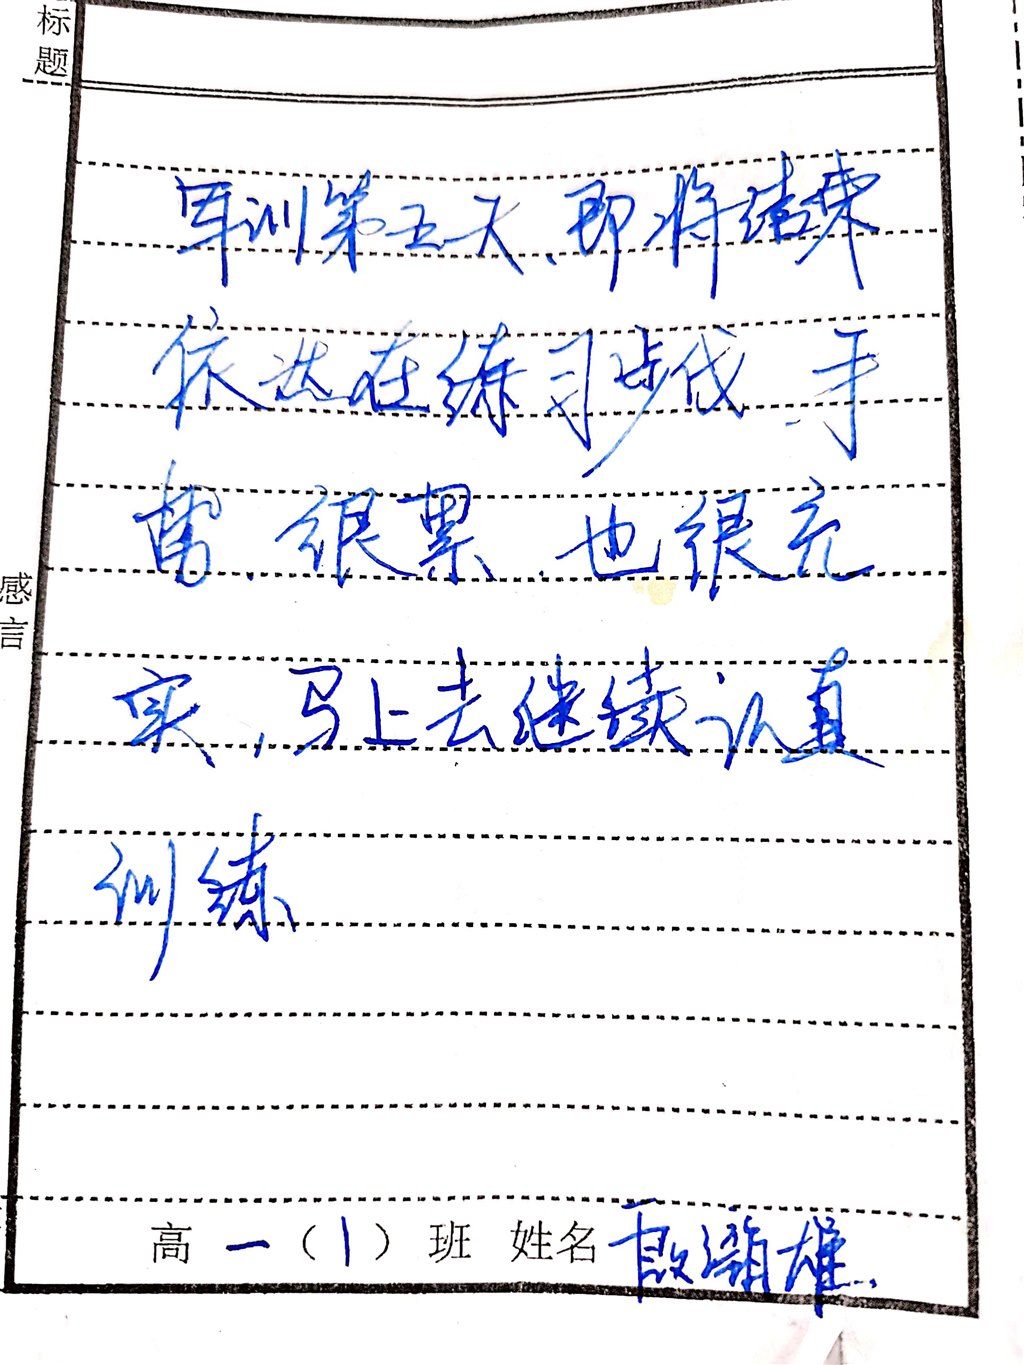 标题
军训第五天、即将结束
依然在练习步伐、手
臂、很累、也很充
实、马上去继续认真
训练
感言
高一（1）班 姓名